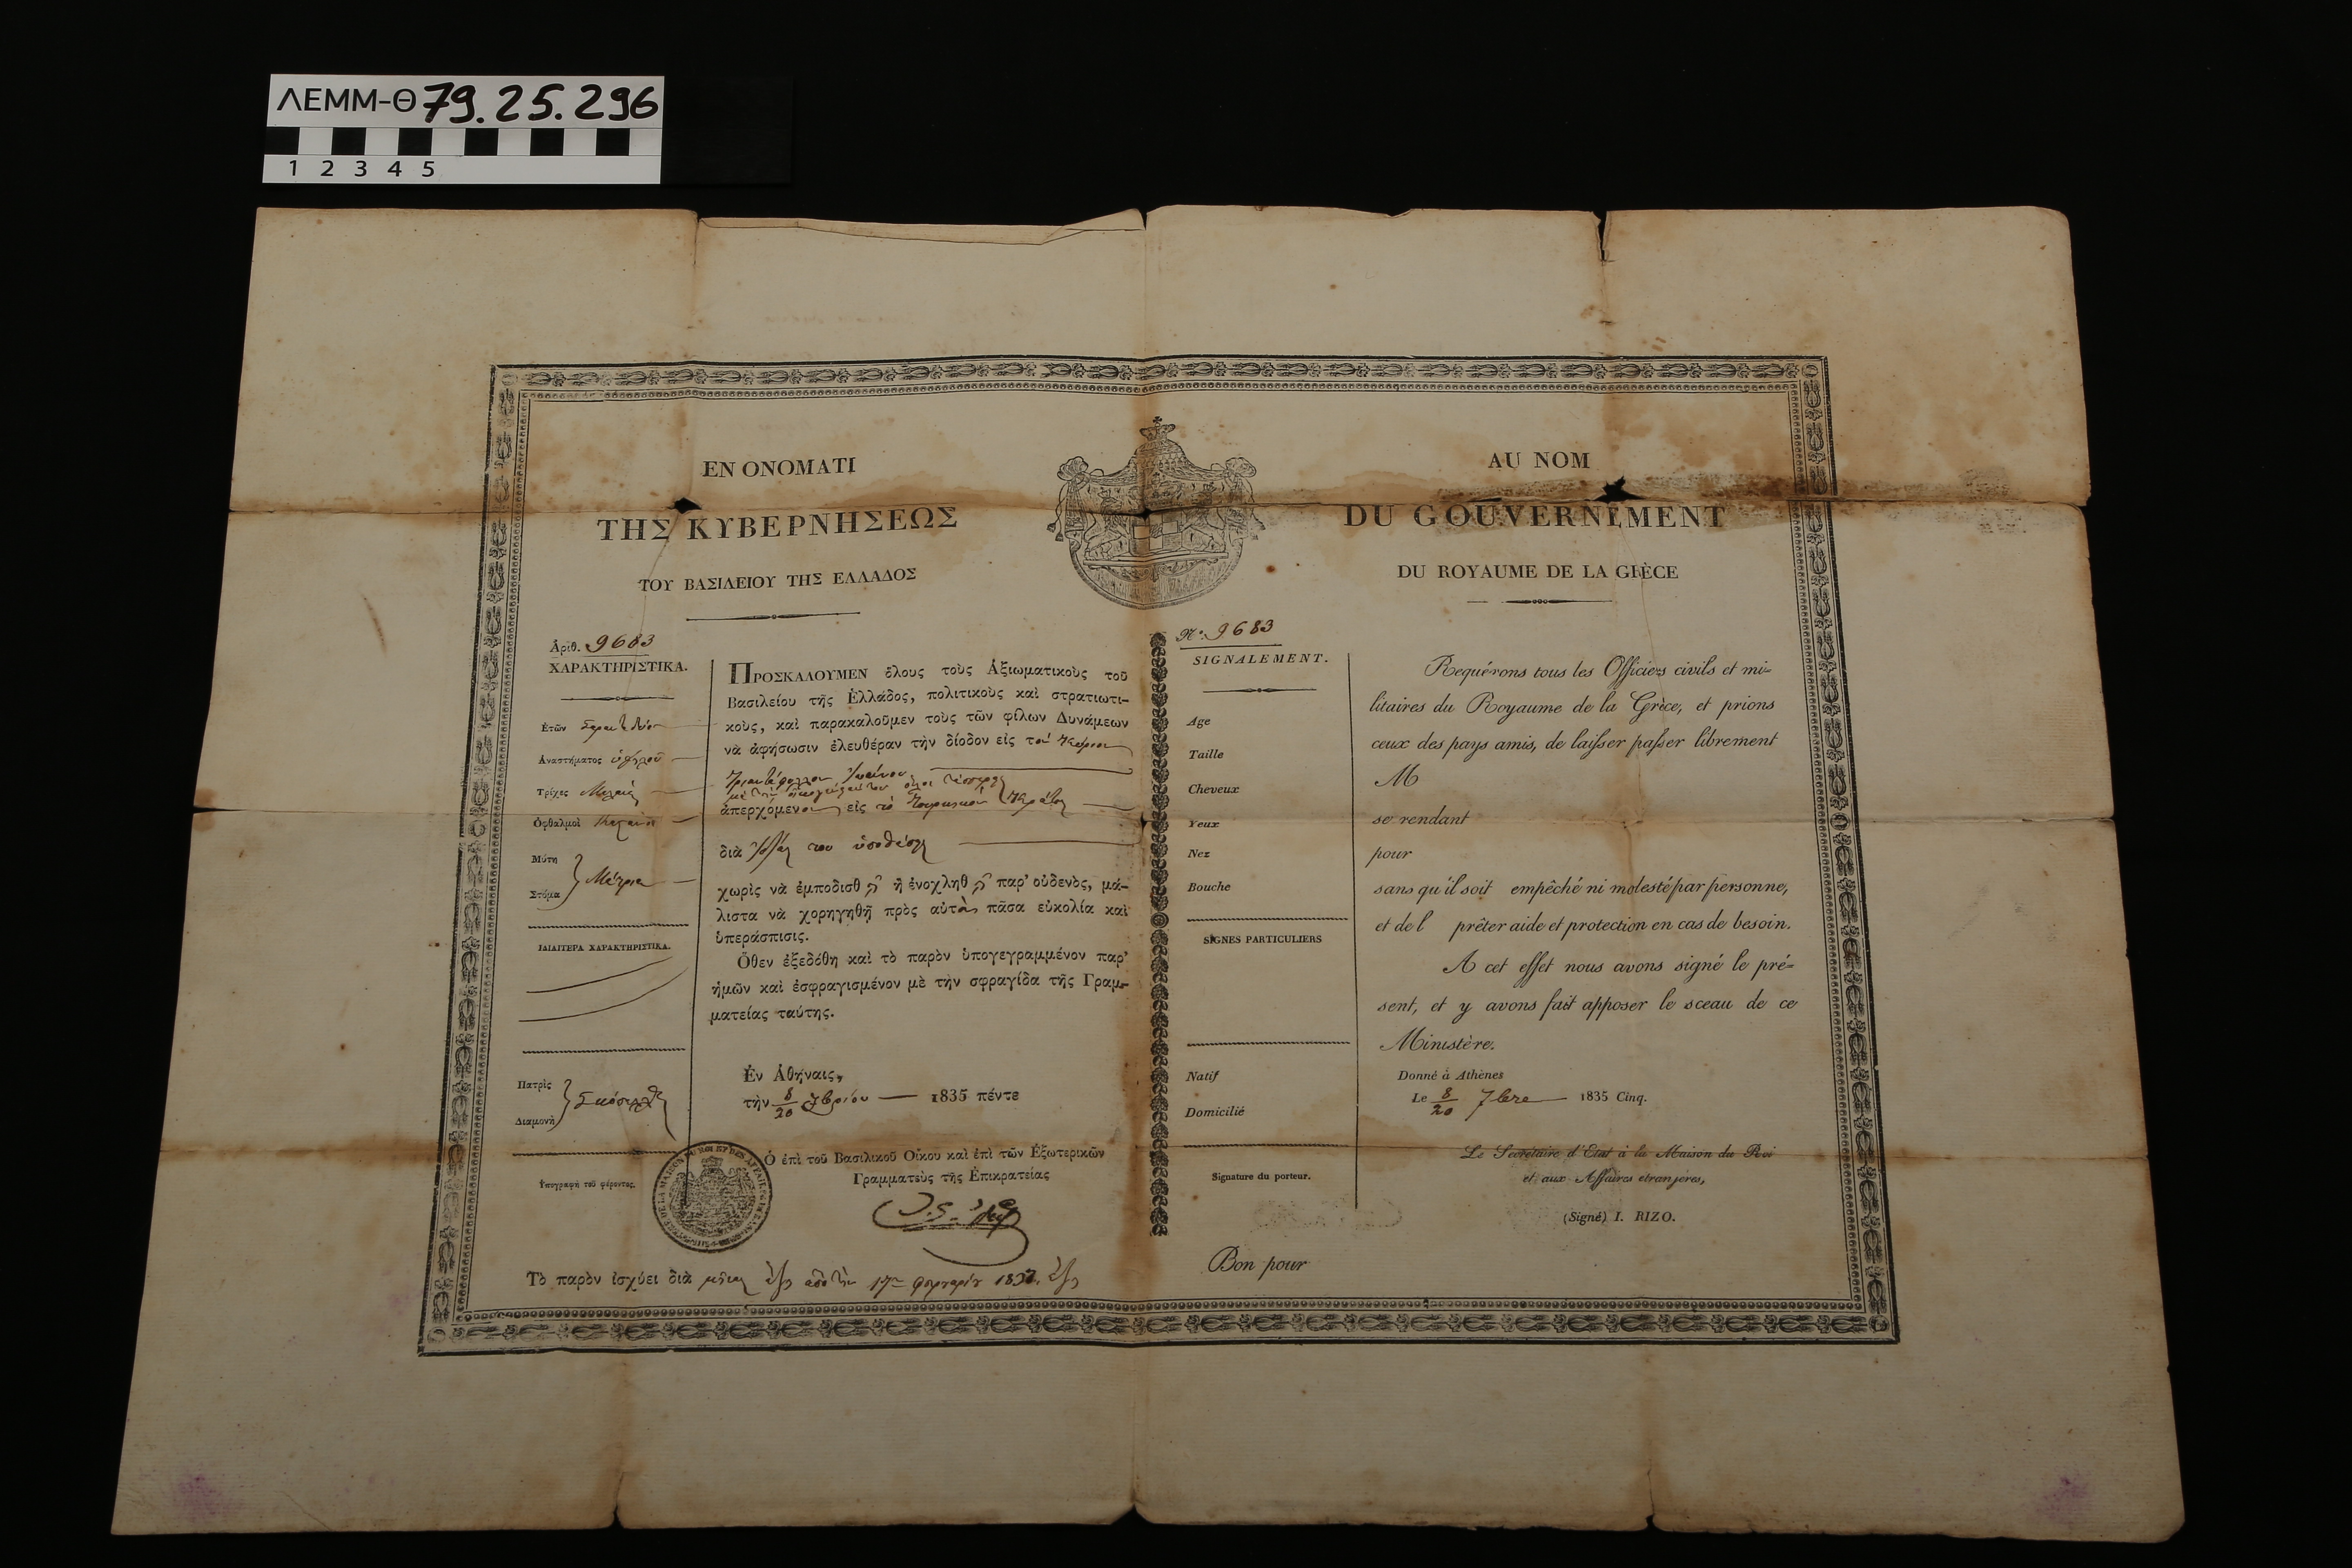 ΛΕΜΜ-Θ 79.25.296
1 2 3 4 5
ΕΝ ΟΝΟΜΑΤΙ
ΤΗΣ ΚΥΒΕΡΝΗΣΕΩΣ
ΤΟΥ ΒΑΣΙΛΕΙΟΥ ΤΗΣ ΕΛΛΑΔΟΣ
Ἀριθ. 9683
ΧΑΡΑΚΤΗΡΙΣΤΙΚΑ.
Ἐτῶν
Ἀναστήματος ὑψηλοῦ
Τρίχες
Ὀφθαλμοὶ
Μύτη
Στόμα
Μέτρια
ΙΔΙΑΙΤΕΡΑ ΧΑΡΑΚΤΗΡΙΣΤΙΚΑ.
Πατρὶς
Διαμονὴ
Ὑπογραφὴ τοῦ φέροντος.
ΠΡΟΣΚΑΛΟΥΜΕΝ ὅλους τοὺς Ἀξιωματικοὺς τοῦ
Βασιλείου τῆς Ἑλλάδος, πολιτικοὺς καὶ στρατιωτι-
κοὺς, καὶ παρακαλοῦμεν τοὺς τῶν φίλων Δυνάμεων
νὰ ἀφήσωσιν ἐλευθέραν τὴν δίοδον εἰς τὸν Κύριον
Τριαντάφυλλον Ἰωάννου
ἀπερχόμενον εἰς τὸ Τουρκικὸν Κράτος
διὰ του ὑποθέσεις
χωρὶς νὰ ἐμποδισθῇ ἢ ἐνοχληθῇ παρ' οὐδενὸς, μά-
λιστα νὰ χορηγηθῇ πρὸς αὐτὸν πᾶσα εὐκολία καὶ
ὑπεράσπισις.
Ὅθεν ἐξεδόθη καὶ τὸ παρὸν ὑπογεγραμμένον παρ'
ἡμῶν καὶ ἐσφραγισμένον μὲ τὴν σφραγίδα τῆς Γραμ-
ματείας ταύτης.
Ἐν Ἀθήναις,
τὴν 8/20 7βρίου 1835 πέντε
Ὁ ἐπὶ τοῦ Βασιλικοῦ Οἴκου καὶ ἐπὶ τῶν Ἐξωτερικῶν
Γραμματεὺς τῆς Ἐπικρατείας
Τὸ παρὸν ἰσχύει διὰ μῆνας ἓξ
AU NOM
DU GOUVERNEMENT
DU ROYAUME DE LA GRÈCE
No. 9683
SIGNALEMENT.
Age
Taille
Cheveux
Yeux
Nez
Bouche
SIGNES PARTICULIERS
Natif
Domicilié
Signature du porteur.
Requérons tous les Officiers civils et mi-
litaires du Royaume de la Grèce, et prions
ceux des pays amis, de laisser passer librement
M
se rendant
pour
sans qu'il soit empêché ni molesté par personne,
et de l prêter aide et protection en cas de besoin.
A cet effet nous avons signé le pré-
sent, et y avons fait apposer le sceau de ce
Ministère.
Donné à Athènes
Le 8/20 7bre 1835 Cinq.
Le Secrétaire d'Etat à la Maison du Roi
et aux Affaires etrangères,
(Signé) I. RIZO.
Bon pour